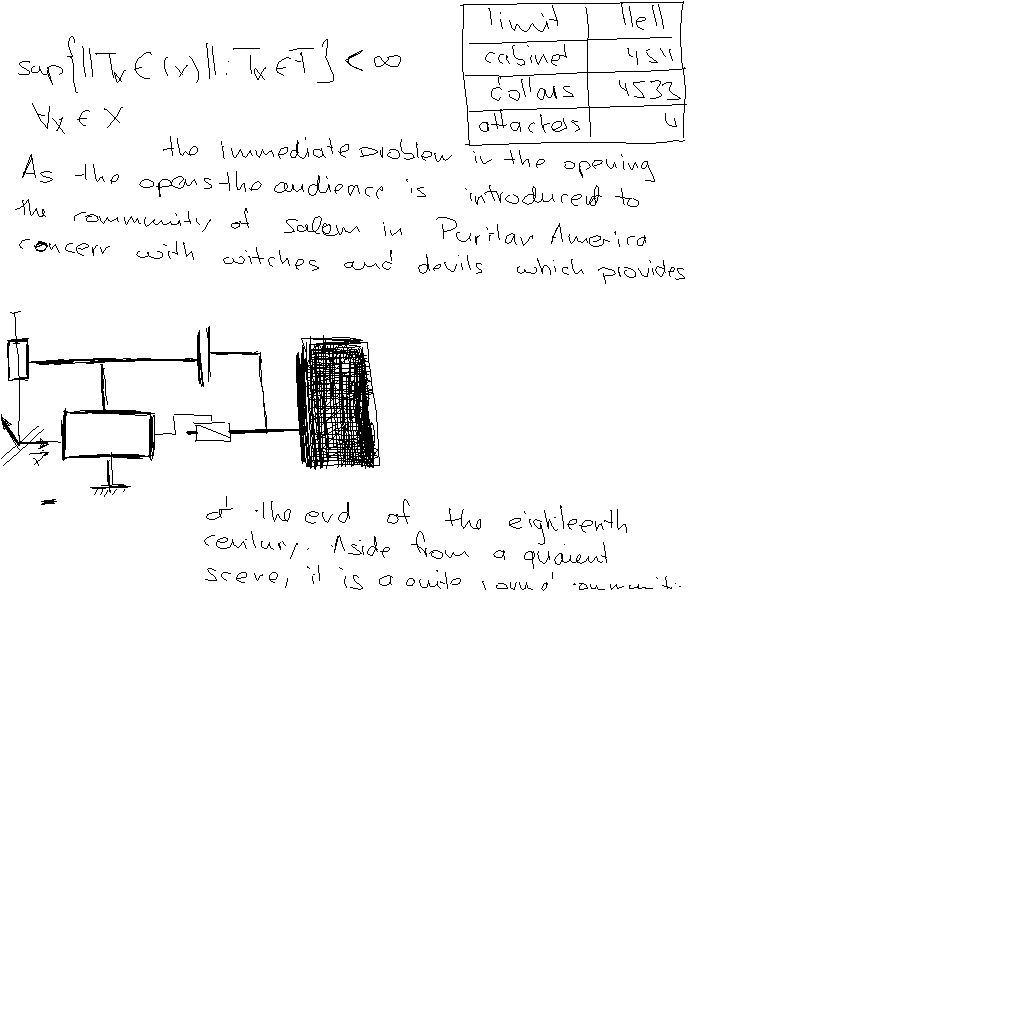 sup{||T_x ∈ (x)|| : T_x ∈ T} < ∞
∀x ∈ X
limit
cabinet 4511
dollars 4533
attackers 4
the immediate problem in the opening
As the opens the audience is introduced to
the community of Salem in Puritan America
concern with witches and devils which provides
x
at the end of the eighteenth
century. Aside from a quaint
scene, it is a quite